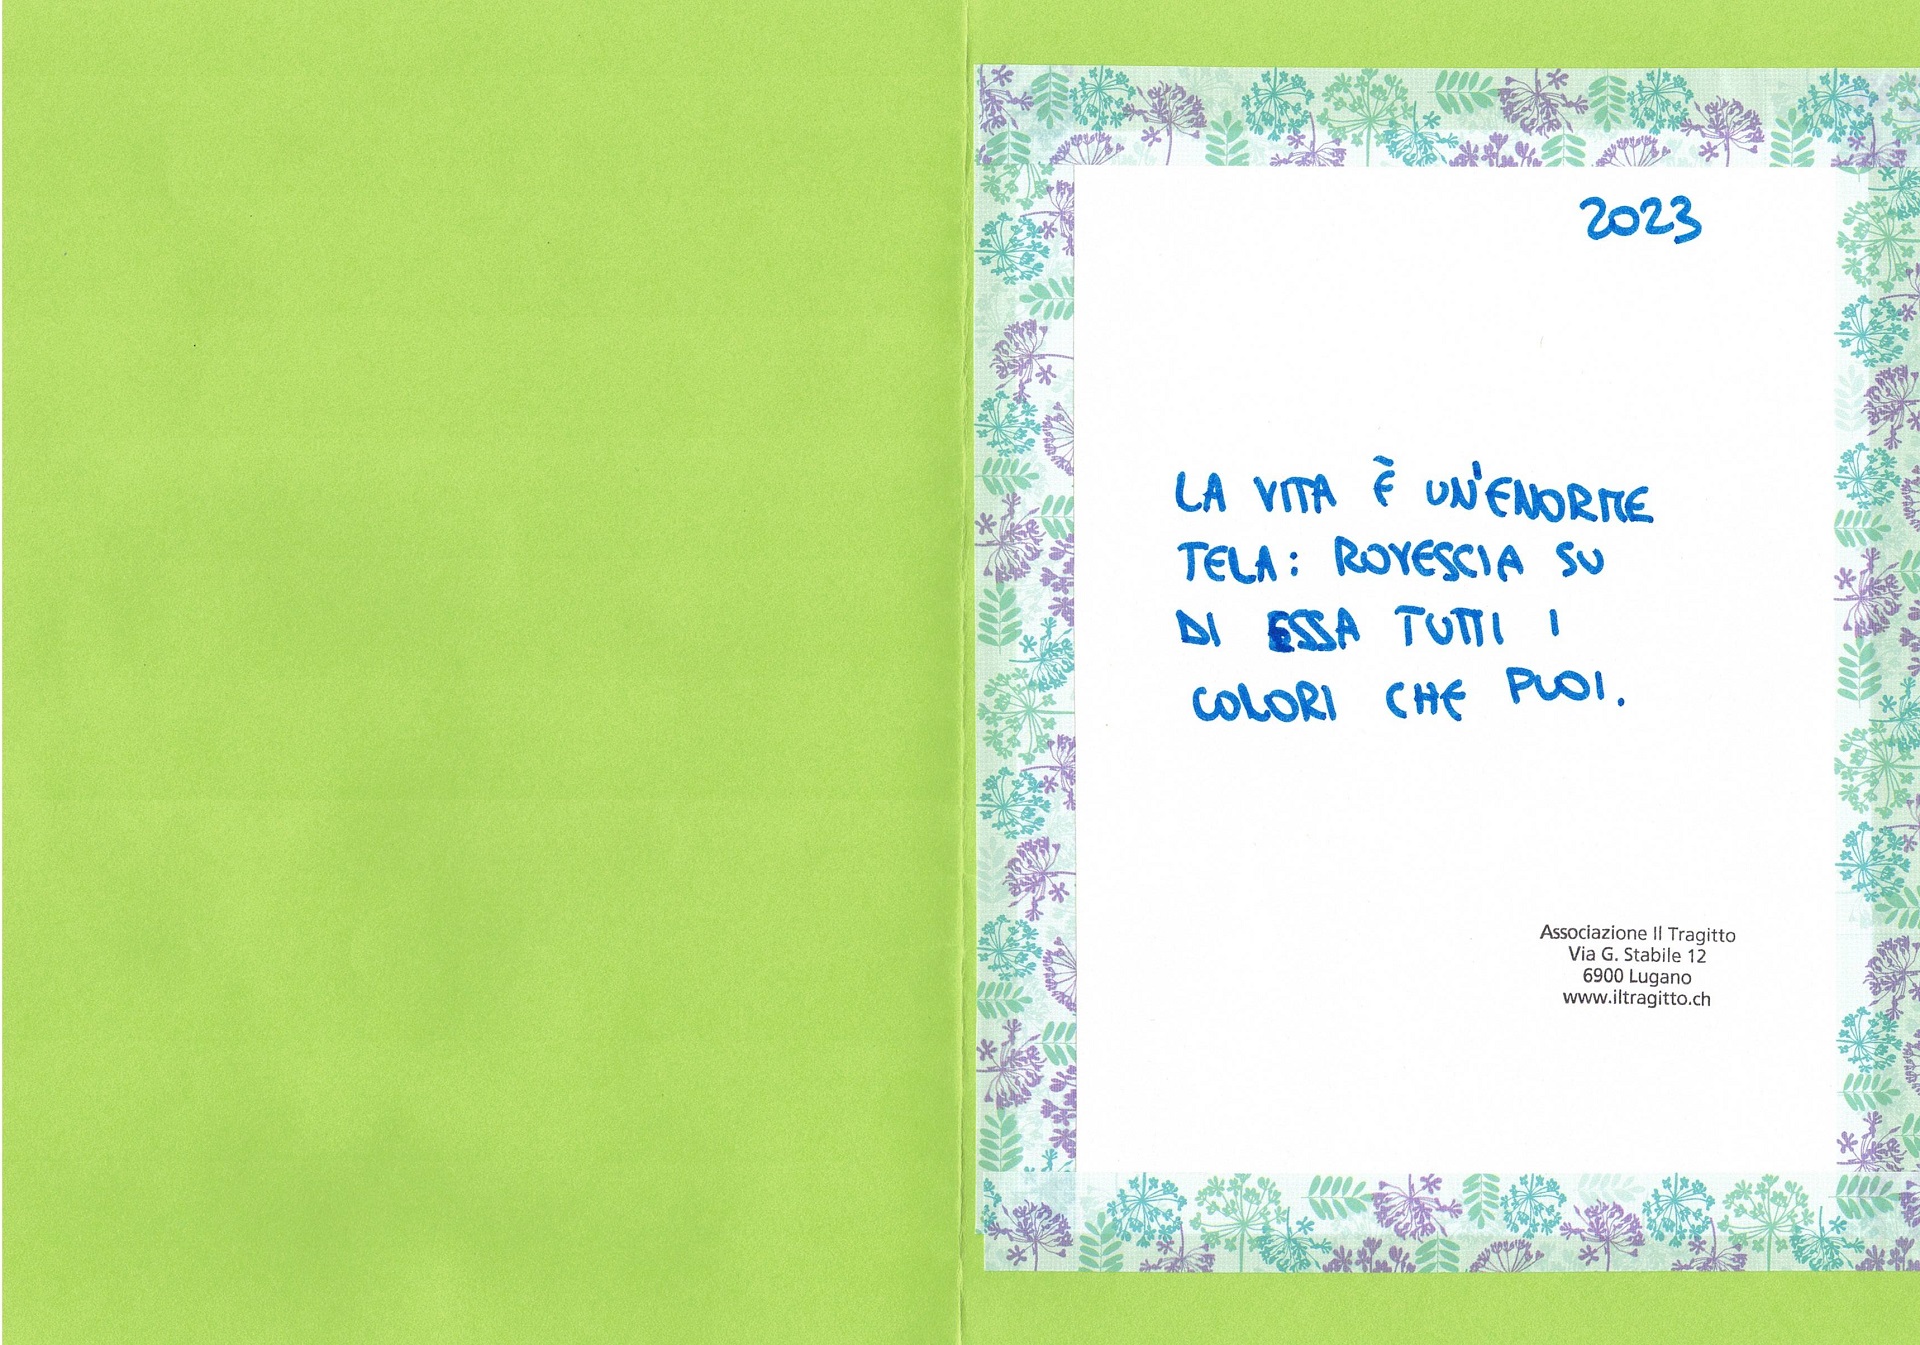 2023
LA VITA È UN'ENORME
TELA: ROVESCIA SU
DI ESSA TUTTI I
COLORI CHE PUOI.
Associazione Il Tragitto
Via G. Stabile 12
6900 Lugano
www.iltragitto.ch